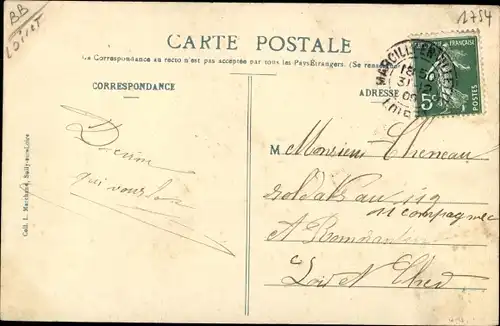 BB
Loiret
1754
CARTE POSTALE
La Correspondance au recto n'est pas acceptée par tous les Pays Étrangers. (Se rense
CORRESPONDANCE
ADRESSE
MARCILLY-EN-VILLETTE
18 50
31
09
LOIRET
FRANÇAISE
POSTES
5c
M Monsieur Cheneau
qui vous
soldat au
11 compagnie
A Romorantin
Loir et Cher
Coll. L. Marchand, Sully-sur-Loire